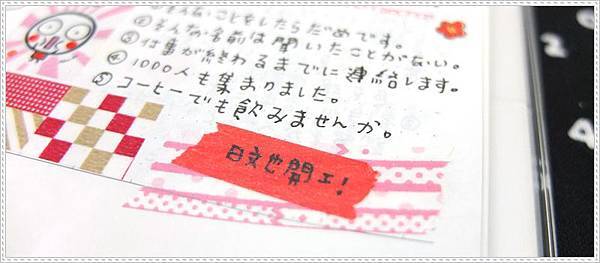 ①そんなことをしたらだめです。
②そんな名前は聞いたことがない。
③仕事が終わるまでに連絡します。
④1000人も集まりました。
⑤コーヒーでも飲みませんか。
日文也開工!